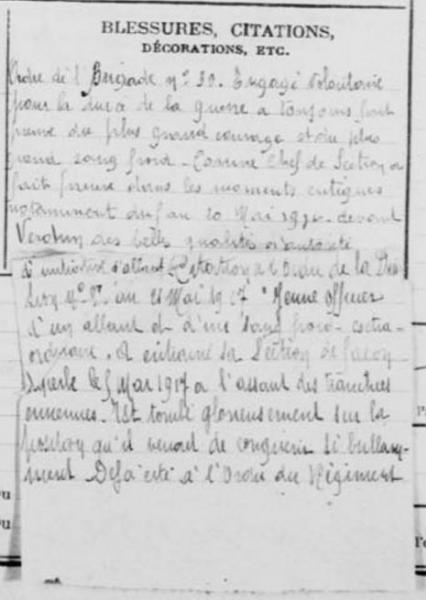 BLESSURES, CITATIONS,
DÉCORATIONS, ETC.
Ordre de l'Brigade n° 30. Engagé volontaire
pour la durée de la guerre a toujours fait
preuve du plus grand courage et du plus
grand sang froid - Comme Chef de Section a
fait preuve dans les moments critiques
notamment du au 20 Mai 1916 - devant
Verdun des belles qualités d'autorité
d'initiative d'allant Citation a l'Ordre de la Divi
sion N° au 21 Mai 1917 "Jeune officier
d'un allant et d'un sang froid extra-
ordinaire. A entrainé sa Section de façon
superbe le 5 Mai 1917 a l'assaut des tranchées
ennemies. Est tombé glorieusement sur la
position qu'il venait de conquérir si brillam-
ment Déjà cité à l'Ordre du Régiment
ou
ou